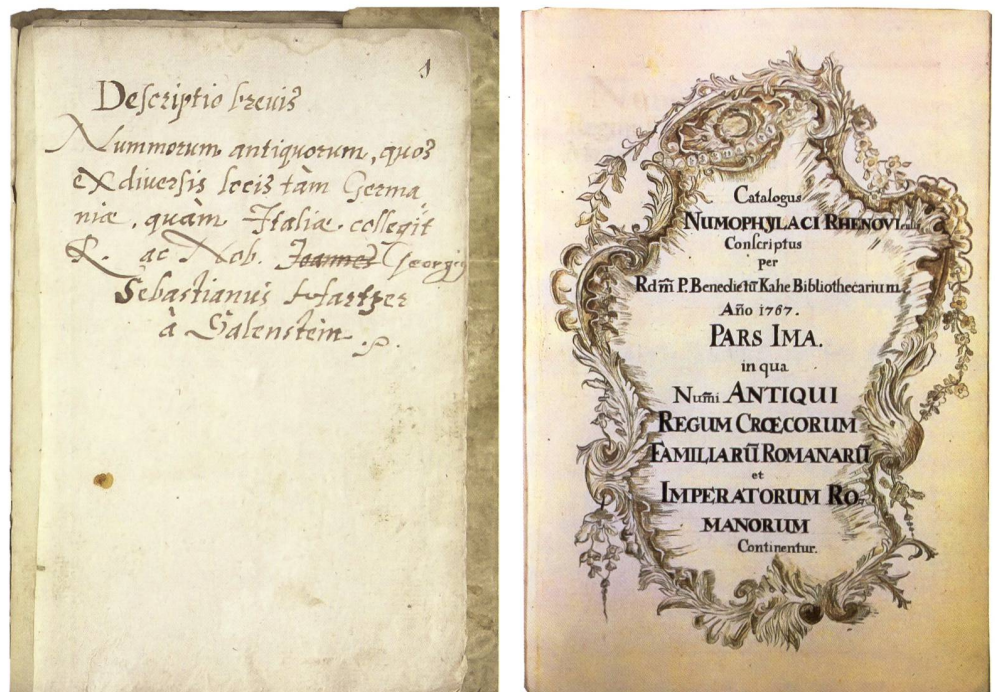 1
Descriptio breuis
Nummorum antiquorum, quos
ex diuersis locis tàm Germa
niæ, quàm Italiæ collegit
R. ac Nob. Joannes Georgius
Sebastianus Hartzer
à Salenstein.
Catalogus
NUMOPHYLACI RHENOVI
Conscriptus
per
Rdm̄ P. Benedictū Kahe Bibliothecarium.
Año 1767.
PARS IMA.
in qua
Num̄i ANTIQUI
REGUM CRŒCORUM
FAMILIARŪ ROMANARŪ
et
IMPERATORUM RO-
MANORUM
Continentur.